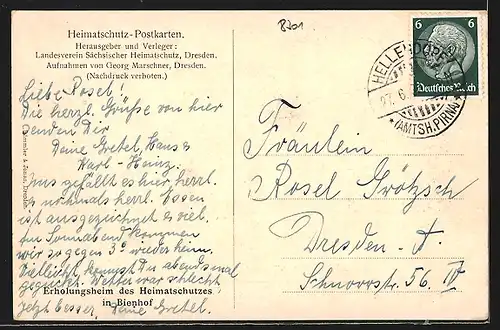 B201
Heimatschutz-Postkarten.
Herausgeber und Verleger:
Landesverein Sächsischer Heimatschutz, Dresden.
Aufnahmen von Georg Marschner, Dresden.
(Nachdruck verboten.)
6 6
Deutsches Reich
HELLENDORF
27.6.
(AMTSH. PIRNA)
Liebe Rosel!
Die herzl. Grüße von hier
senden Dir
Deine Gretel, Hans &
Karl-Heinz.
Uns gefällt es hier herrl.
nochmals herrl. Essen
ist ausgezeichnet & viel.
Am Sonnabend kommen
wir so gegen 3° wieder heim.
Vielleicht kommst Du abends mal
geguckt. Wetter war schlecht,
jetzt besser. Deine Gretel.
Erholungsheim des Heimatschutzes
in Bienhof
Fräulein
Rosel Grötzsch
Dresden-A.
56 IV